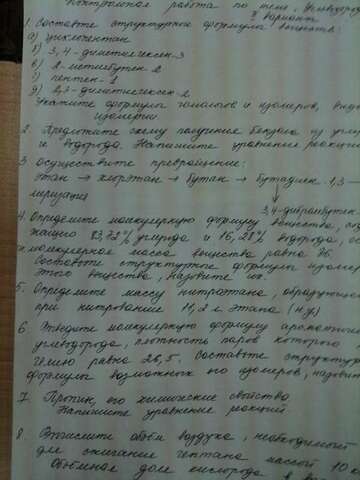 Контрольная работа по теме „Углеводор
2 вариант
1. Составьте структурные формулы веществ:
а) циклопентан
б) 3,4-диметилгексен-3
в) 2-метилбутен-2
г) пентен-2
д) 2,3-диметилгексен-2
Укажите формулы гомологов и изомеров, виды
изомерии
2. Предложите схему получения бензола из угле
и водорода. Напишите уравнения реакции
3. Осуществите превращение:
этан → хлорэтан → бутан → бутадиен-1,3 →
меризация
3,4-дибромбутен-
4. Определите молекулярную формулу вещества, сод
жащего 83,72% углерода и 16,28% водорода, ес
молекулярная масса вещества равна 86.
Составьте структурные формулы изоме
этого вещества, назовите их.
5. Определите массу нитроэтана, образующего
при нитровании 11,2 л этана (н.у.)
6. Выведите молекулярную формулу ароматическ
углеводорода, плотность паров которого
гелию равна 26,5. Составьте структур
формулы возможных его изомеров, назовит
7. Пропин, его химические свойства
Напишите уравнения реакций
8. Вычислите объём воздуха, необходимый
для сжигания гептана массой 10 кг
Объёмная доля кислорода в